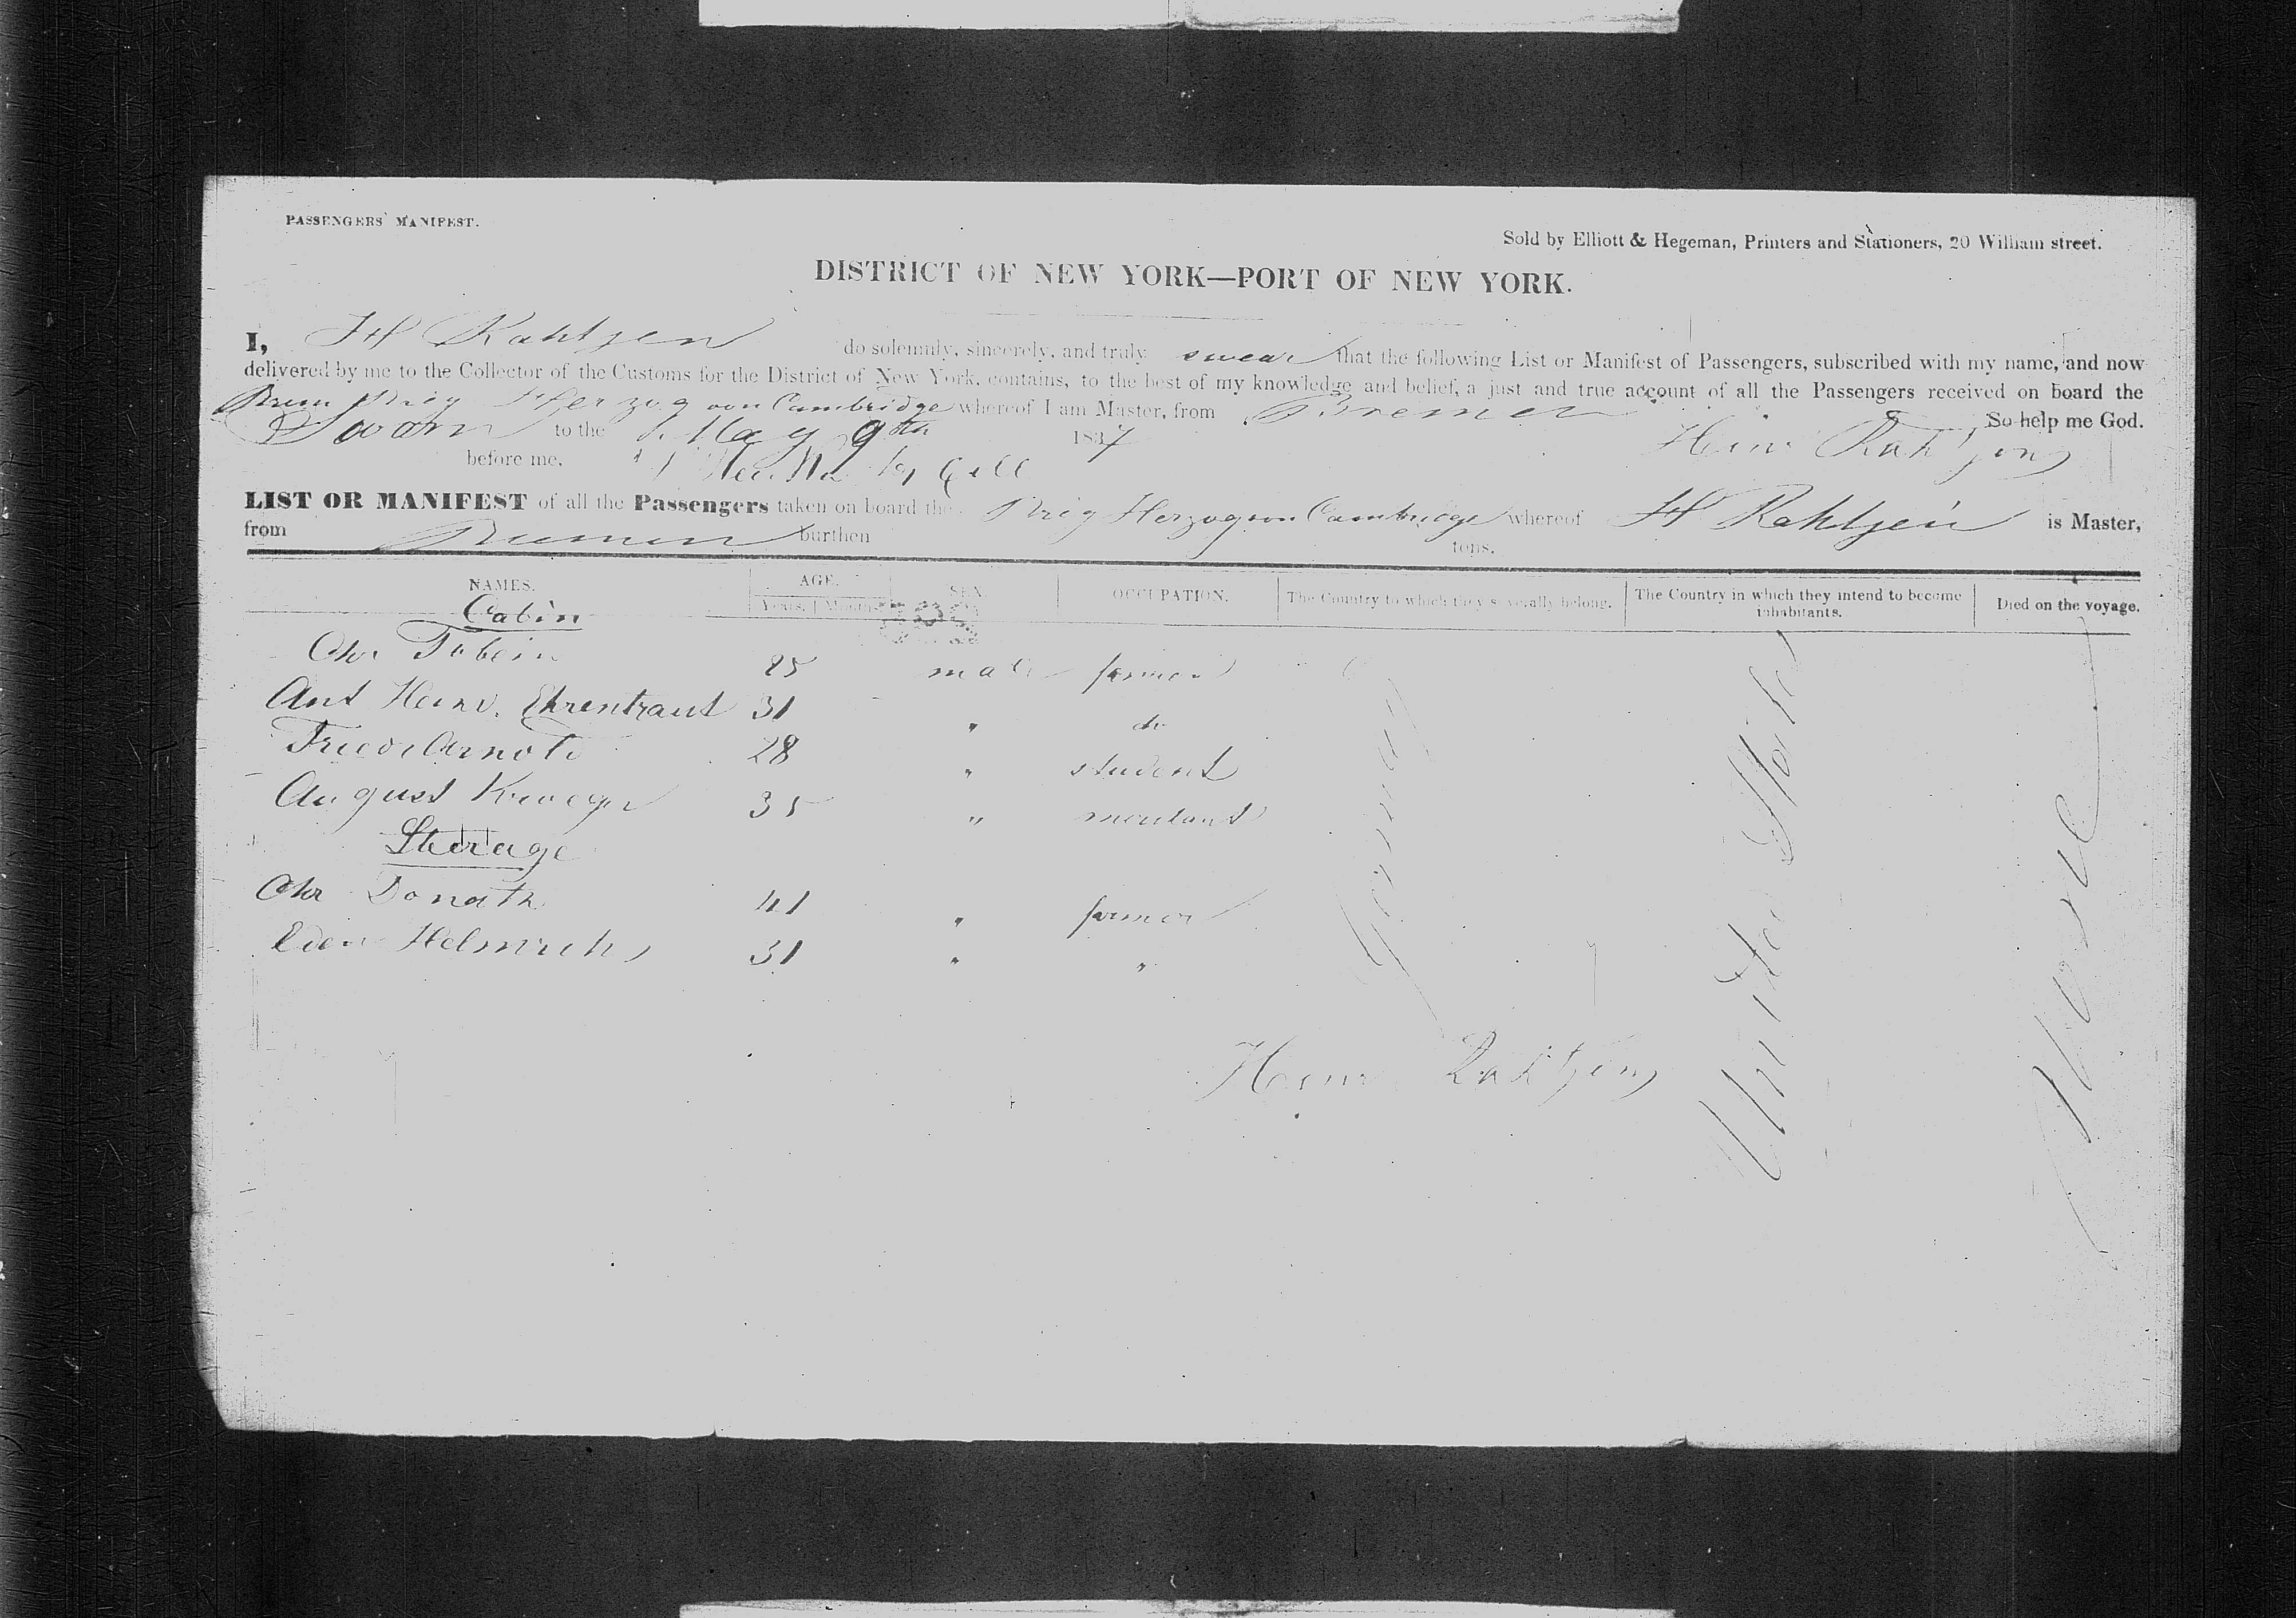 PASSENGERS' MANIFEST.
Sold by Elliott & Hegeman, Printers and Stationers, 20 William street.
DISTRICT OF NEW YORK—PORT OF NEW YORK.
I, H Rahtjen do solemnly, sincerely, and truly swear that the following List or Manifest of Passengers, subscribed with my name, and now
delivered by me to the Collector of the Customs for the District of New York, contains, to the best of my knowledge and belief, a just and true account of all the Passengers received on board the
Brem Brig Herzog von Cambridge whereof I am Master, from Bremen
So help me God.
Sworn to the May 9th 1837
Heinr Rahtjen
before me,
LIST OR MANIFEST of all the Passengers taken on board the Brig Herzog von Cambridge whereof H Rahtjen is Master,
from Bremen burthen tons.
NAMES. AGE. SEX. OCCUPATION. The Country to which they severally belong. The Country in which they intend to become inhabitants. Died on the voyage.
Years. Months
Cabin
Chr Tobein 25 male farmer
Ant Heinr. Ehrentraut 31 " do
Friedr Arnold 28 " student
August Krueger 35 " merchant
Steerage
Chr Donath 41 " farmer
Eden Helmrichs 31 " "
Germany
United States
None
Heinr Rahtjen